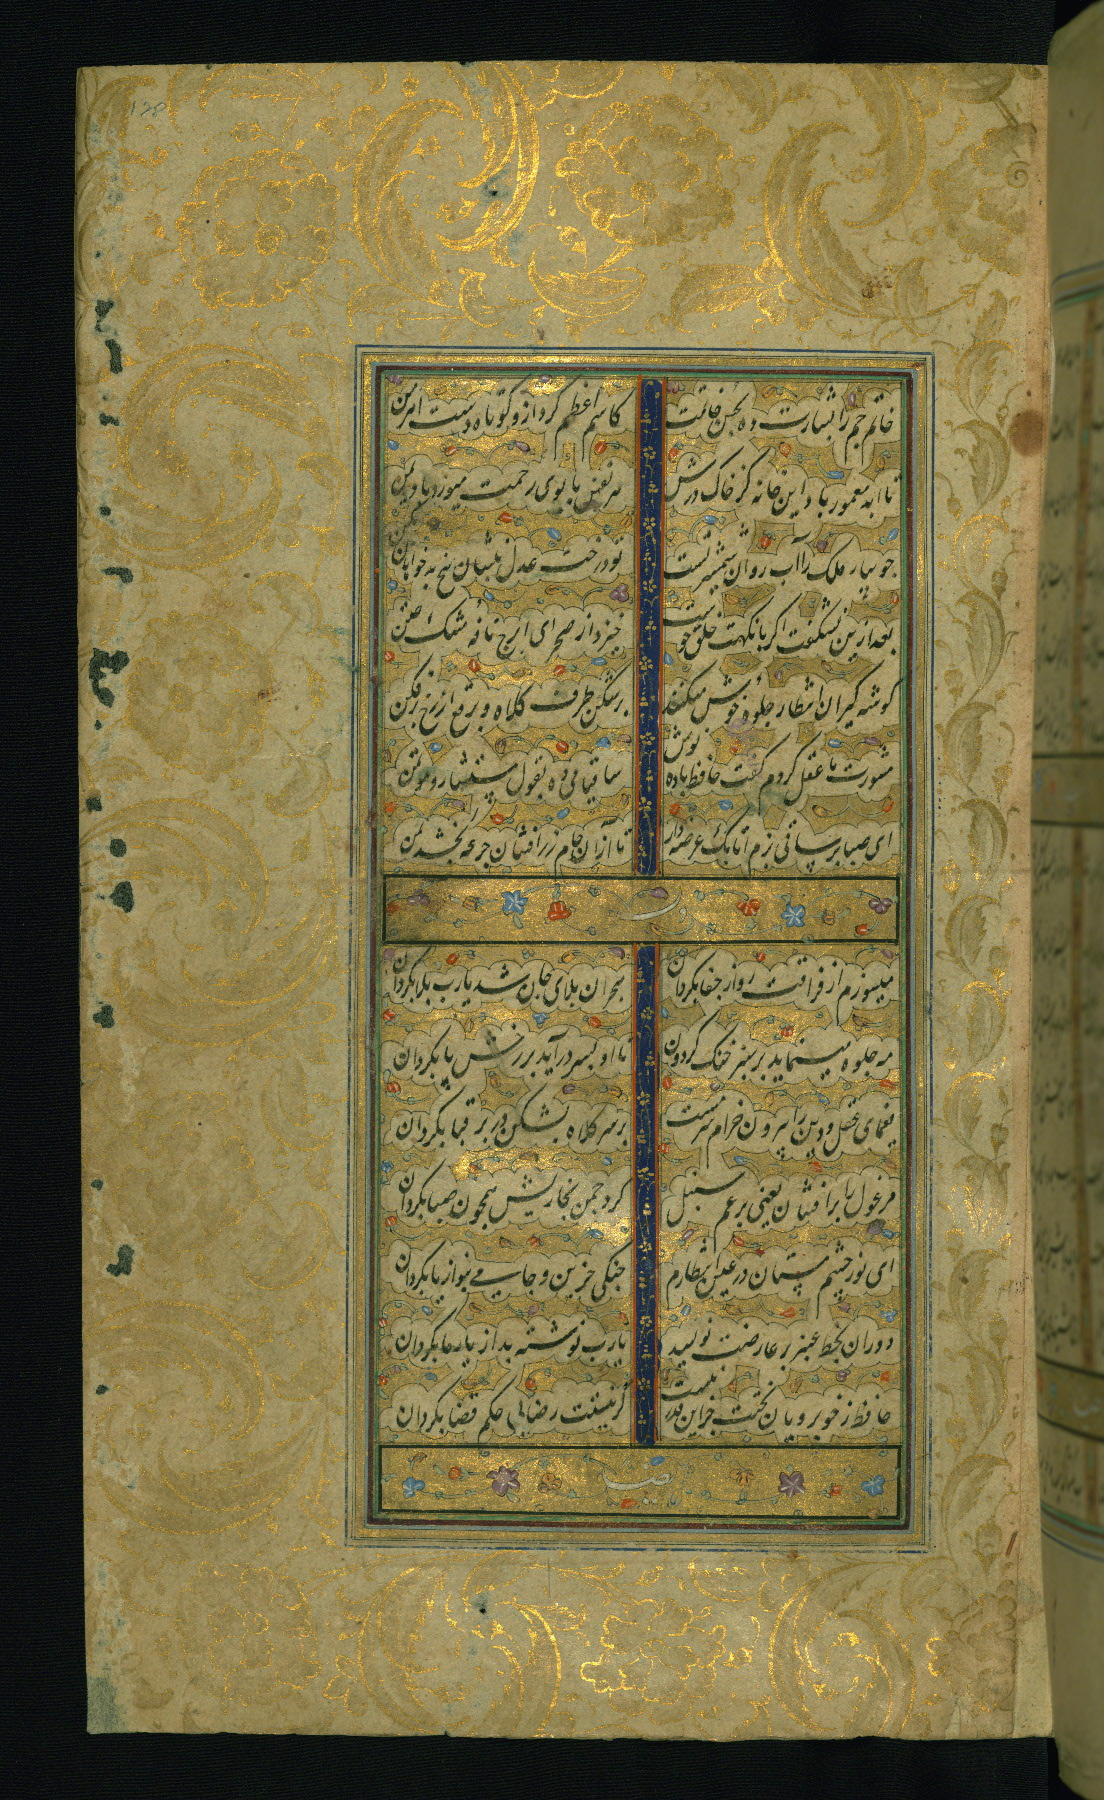 158
خاتم جم را بشارت ده بحسن خاتمت
کاسم اعظم کرد ازو کوتاه دست اهرمن
تا ابد معمور باد این خانه کز خاک درش
هر نفس با بوی رحمت میوزد باد یمن
جویبار ملک را آب روان شمشیر تست
تو درخت عدل بنشان بیخ بدخواهان بکن
بعد ازین نشکفت اگر با نکهت خلق خوشت
خیزد از صحرای ایرج نافهٔ مشک ختن
گوشه گیران انتظار جلوهٔ خوش میکنند
برشکن طرف کلاه و برقع از رخ برفکن
مشورت با عقل کردم گفت حافظ باده نوش
ساقیا می ده بقول مستشار موتمن
ای صبا بر ساقی بزم اتابک عرضه دار
تا از آن جام زرافشان جرعه‌ای بخشد بمن
میسوزم از فراقت رو از جفا بگردان
هجران بلای جان شد یارب بلا بگردان
مه جلوه مینماید بر سبز خنگ گردون
تا او بسر درآید بر رخش پا بگردان
یغمای عقل و دین را بیرون خرام سرمست
بر سر کلاه بشکن در بر قبا بگردان
مرغول را برافشان یعنی برغم سنبل
گرد چمن بخاریش همچون صبا بگردان
ای نور چشم مستان در عین انتظارم
چنگی حزین و جامی بنواز یا بگردان
دوران بخط عنبر بر عارضت نویسد
یارب نوشته بد از یار ما بگردان
حافظ ز خوبرویان بختت جز این قدر نیست
گر نیستت رضایی حکم قضا بگردان